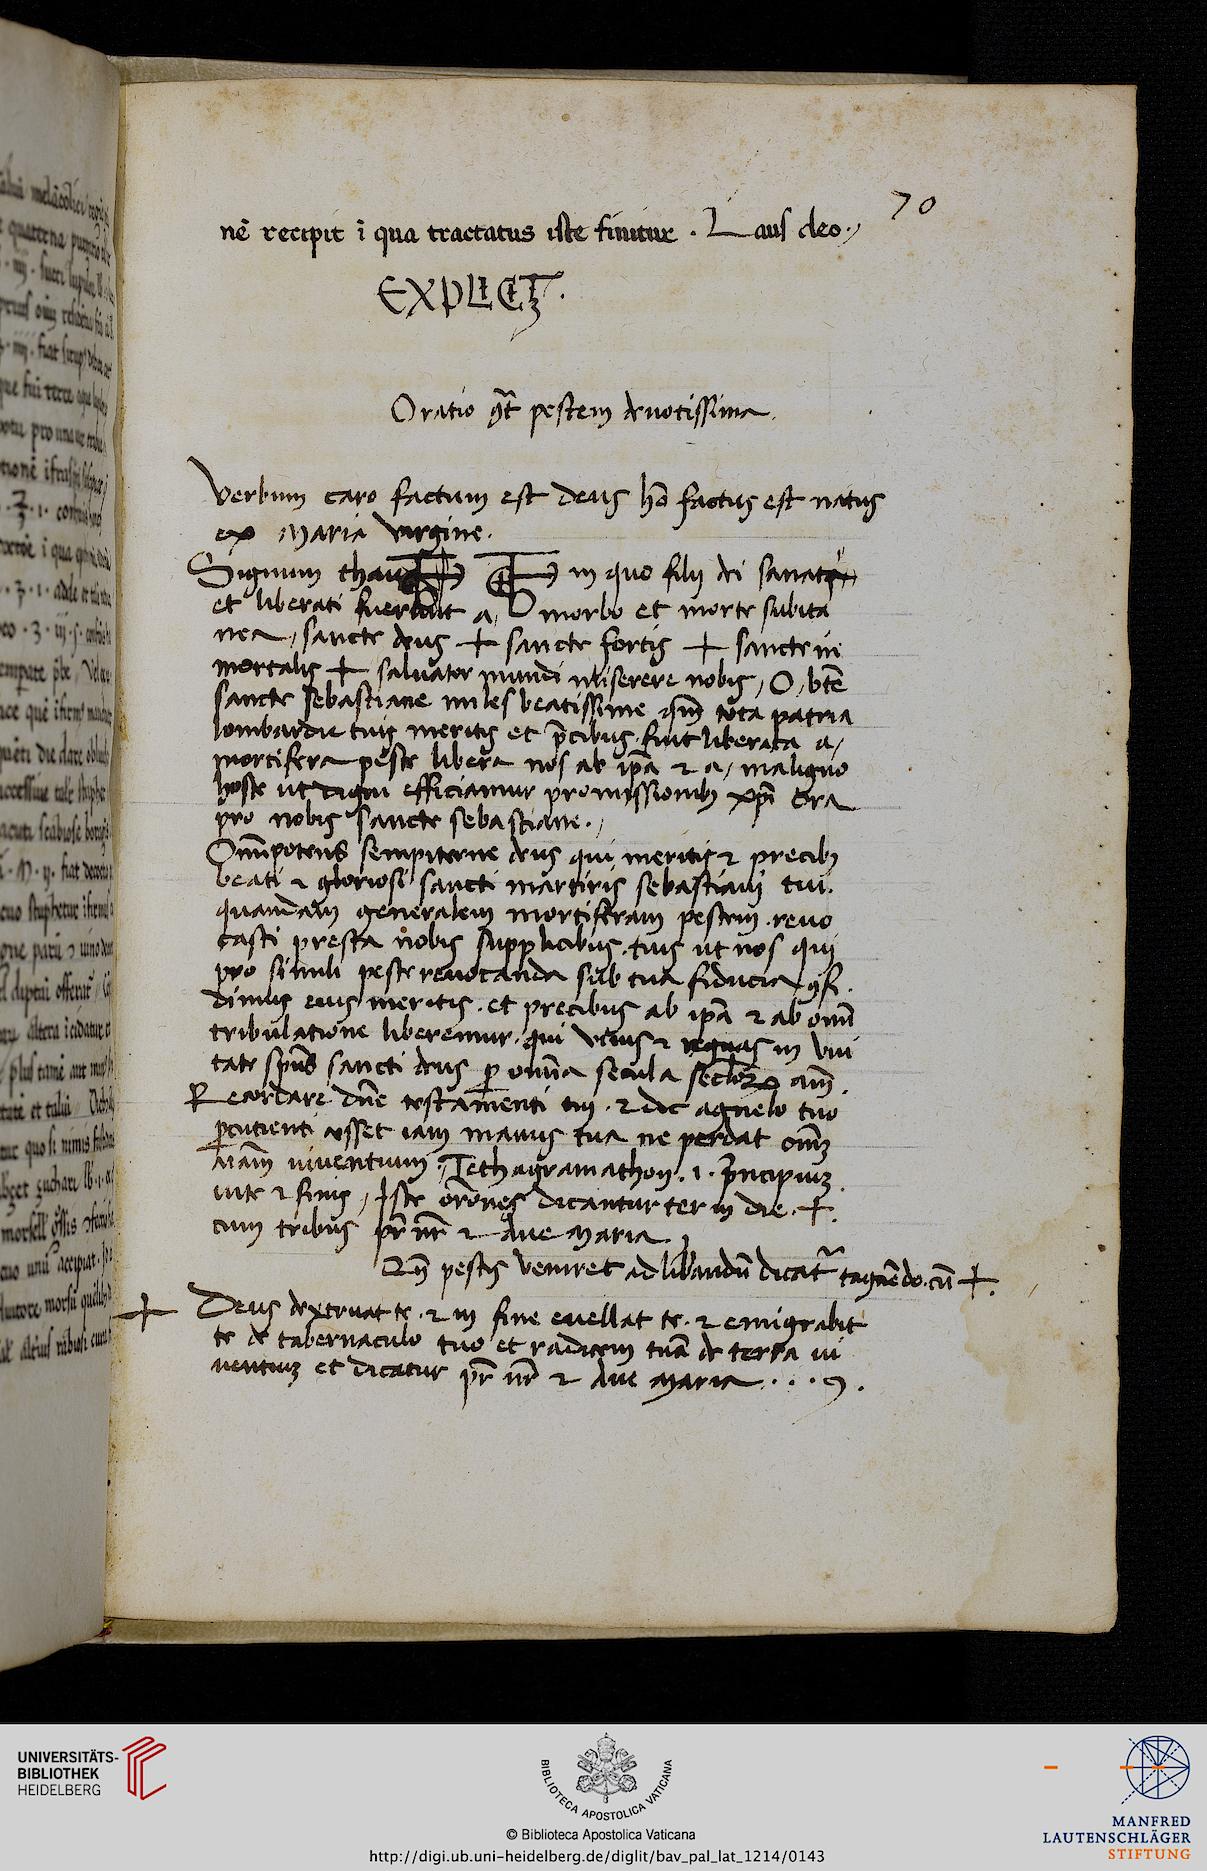 70
nē recipit ī qua tractatus iste finitur . Laus deo .,
EXPLICꝫ .
Oratio 9t̄ pestem deuotissima .
Verbum caro factum est deus hō factus est natus
ex Maria virgine .
Signum thau T in quo filij dei sanati
et liberati fuerunt a, morbo et morte subita
nea , sancte deus + sancte fortis + sancte im̄
mortalis + saluator mundi miserere nobis , O, btē
sancte sebastiane miles beatissime tota patria
lombardie tuis meritis et p̄cibus fuit liberata a,
mortifera peste libera nos ab ip̄a ⁊ a, maligno
hoste ut digni efficiamur promissionibꝰ xp̄i Ora
pro nobis sancte sebastiane .,
Om̄ipotens sempiterne deus qui meritis ⁊ precibꝰ
beati ⁊ gloriosi sancti martiris sebastiani tui .
quamdam generalem mortiferam pestem reuo
casti presta nobis supplicibus tuis ut nos qui
pro simili peste reuocanda sub tua fiducia 9fi .
dimus eius meritis . et precibus ab ip̄a ⁊ ab om̄i
tribulatione liberemur . qui viuis ⁊ regnas in vni
tate sp̄us sancti deus ꝑ om̄ia secula seclōꝝ am̄ .
Recordare dn̄e testamenti tui . ⁊ dic agnelo tuo
ꝑcutienti cesset iam manus tua ne perdat om̄eꝫ
aīam viuentium . Tethagramathon . 1 . p̄ncipiuꝫ
uite ⁊ finis , Iste ōrōnes dicantur ter in die . + .
cum tribus pr̄ nr̄ ⁊ Aue Maria .
pestis veniret ad libandū dicat᷑ tagnēdo . cū + .
+ Deus dextruat te . ⁊ in fine euellat te . ⁊ emigrabit
te de tabernaculo tuo et radicem tuā de terra ui
uentiuꝫ et dicatur pr̄ nr̄ ⁊ Aue Maria . . . 9 .
UNIVERSITÄTS-
BIBLIOTHEK
HEIDELBERG
BIBLIOTECA APOSTOLICA VATICANA
© Biblioteca Apostolica Vaticana
http://digi.ub.uni-heidelberg.de/diglit/bav_pal_lat_1214/0143
MANFRED
LAUTENSCHLÄGER
STIFTUNG